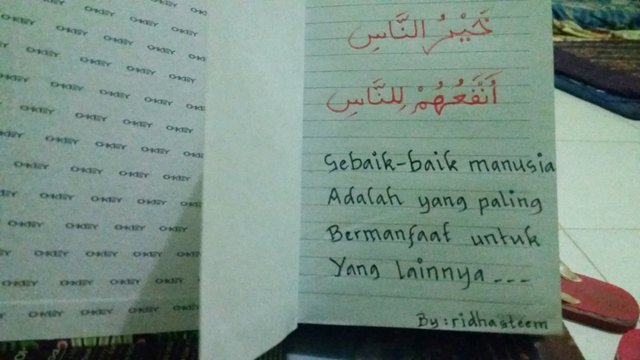 خَيْرُ النَّاسِ
أَنْفَعُهُمْ لِلنَّاسِ
Sebaik-baik manusia
Adalah yang paling
Bermanfaat untuk
Yang lainnya ---
By: ridhasteem